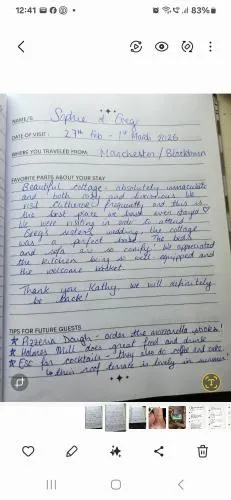 12:41
83%
NAME/S: Sophie & Greg
DATE OF VISIT: 27th Feb - 1st March 2026
WHERE YOU TRAVELED FROM: Manchester / Blackburn
FAVORITE PARTS ABOUT YOUR STAY
Beautiful cottage - absolutely immaculate
and both cosy and luxurious. We
visit Clitheroe frequently and this is
the best place we have ever stayed ♡
We were visiting in order to attend
Greg's sisters wedding, the cottage
was a perfect base. The beds
and sofa are so comfy. We appreciated
the kitchen being so well equipped and
the welcome basket.
Thank you Kathy, we will definitely
be back!
TIPS FOR FUTURE GUESTS
★ Pizzeria Dough - order the mozzarella sticks!
★ Holmes Mill does great food and drink
★ Esc for cocktails - they also do coffee and cake
↳ their roof terrace is lovely in summer!
T